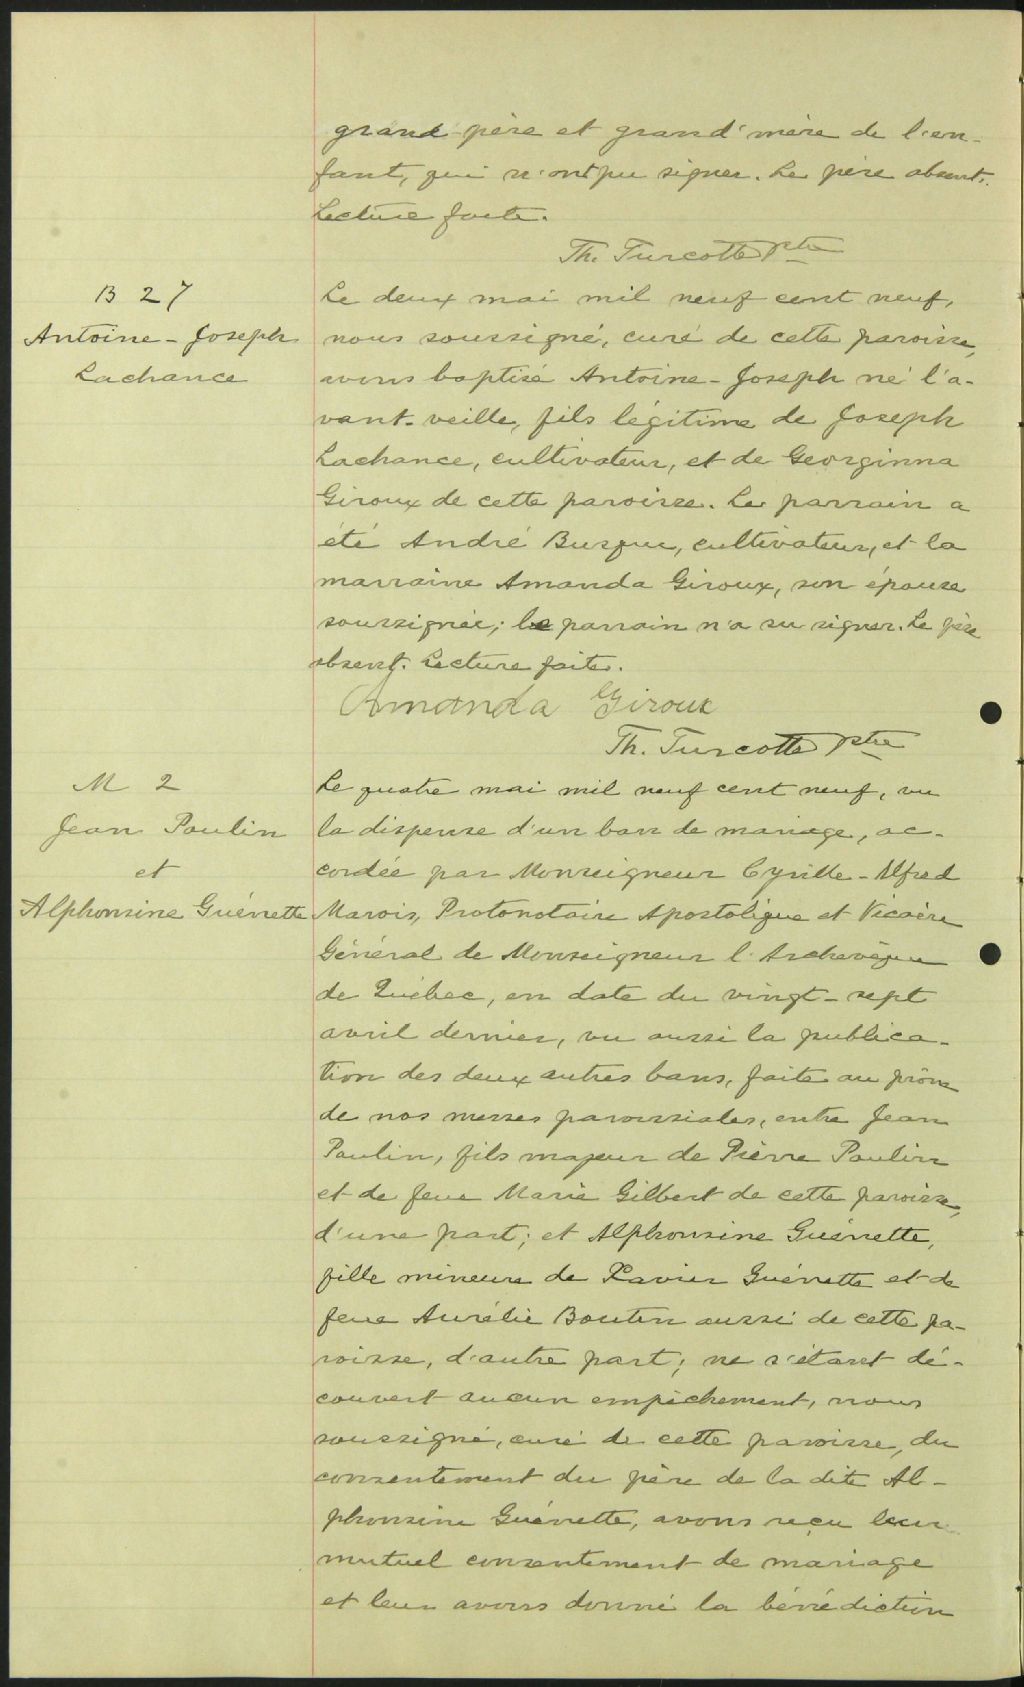 grand-père et grand'mère de l'en-
fant, qui n'ont pu signer. Le père absent.
Lecture faite.
Th. Turcotte ptre
B 27
Antoine-Joseph
Lachance
Le deux mai mil neuf cent neuf,
nous soussigné, curé de cette paroisse,
avons baptisé Antoine-Joseph né l'a-
vant-veille, fils légitime de Joseph
Lachance, cultivateur, et de Georginna
Giroux de cette paroisse. Le parrain a
été André Busque, cultivateur, et la
marraine Amanda Giroux, son épouse
soussignée; le parrain n'a su signer. Le père
absent. Lecture faite.
Amanda Giroux
Th. Turcotte ptre
M 2
Jean Poulin
et
Alphonsine Guénette
Le quatre mai mil neuf cent neuf, vu
la dispense d'un ban de mariage, ac-
cordée par Monseigneur Cyrille-Alfred
Marois, Protonotaire Apostolique et Vicaire
Général de Monseigneur l'Archevêque
de Québec, en date du vingt-sept
avril dernier, vu aussi la publica-
tion des deux autres bans, faite au prône
de nos messes paroissiales, entre Jean
Poulin, fils majeur de Pierre Poulin
et de feue Marie Gilbert de cette paroisse,
d'une part; et Alphonsine Guénette,
fille mineure de Xavier Guénette et de
feue Aurélie Boutin aussi de cette pa-
roisse, d'autre part; ne s'étant dé-
couvert aucun empêchement, nous
soussigné, curé de cette paroisse, du
consentement du père de la dite Al-
phonsine Guénette, avons reçu leur
mutuel consentement de mariage
et leur avons donné la bénédiction